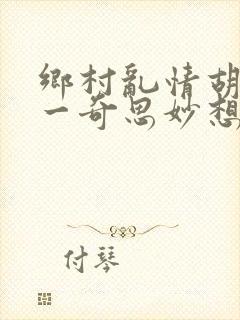 鄉村亂情胡
一奇思妙想
付琴